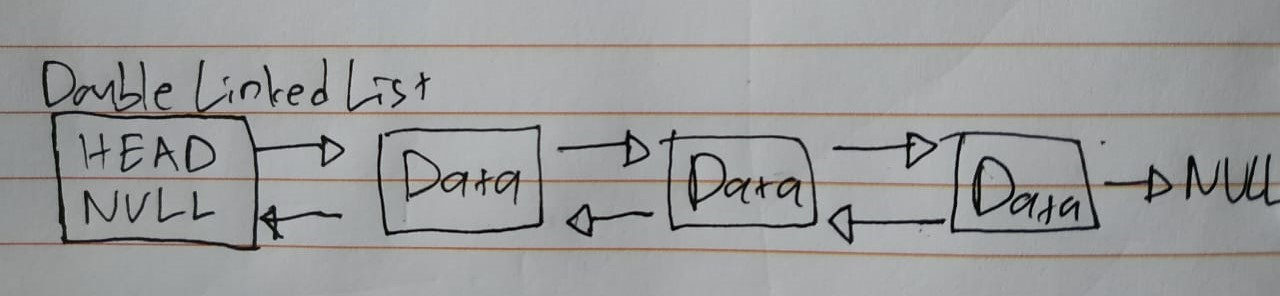 Double Linked List
HEAD
NULL
Data
Data
Data
NULL